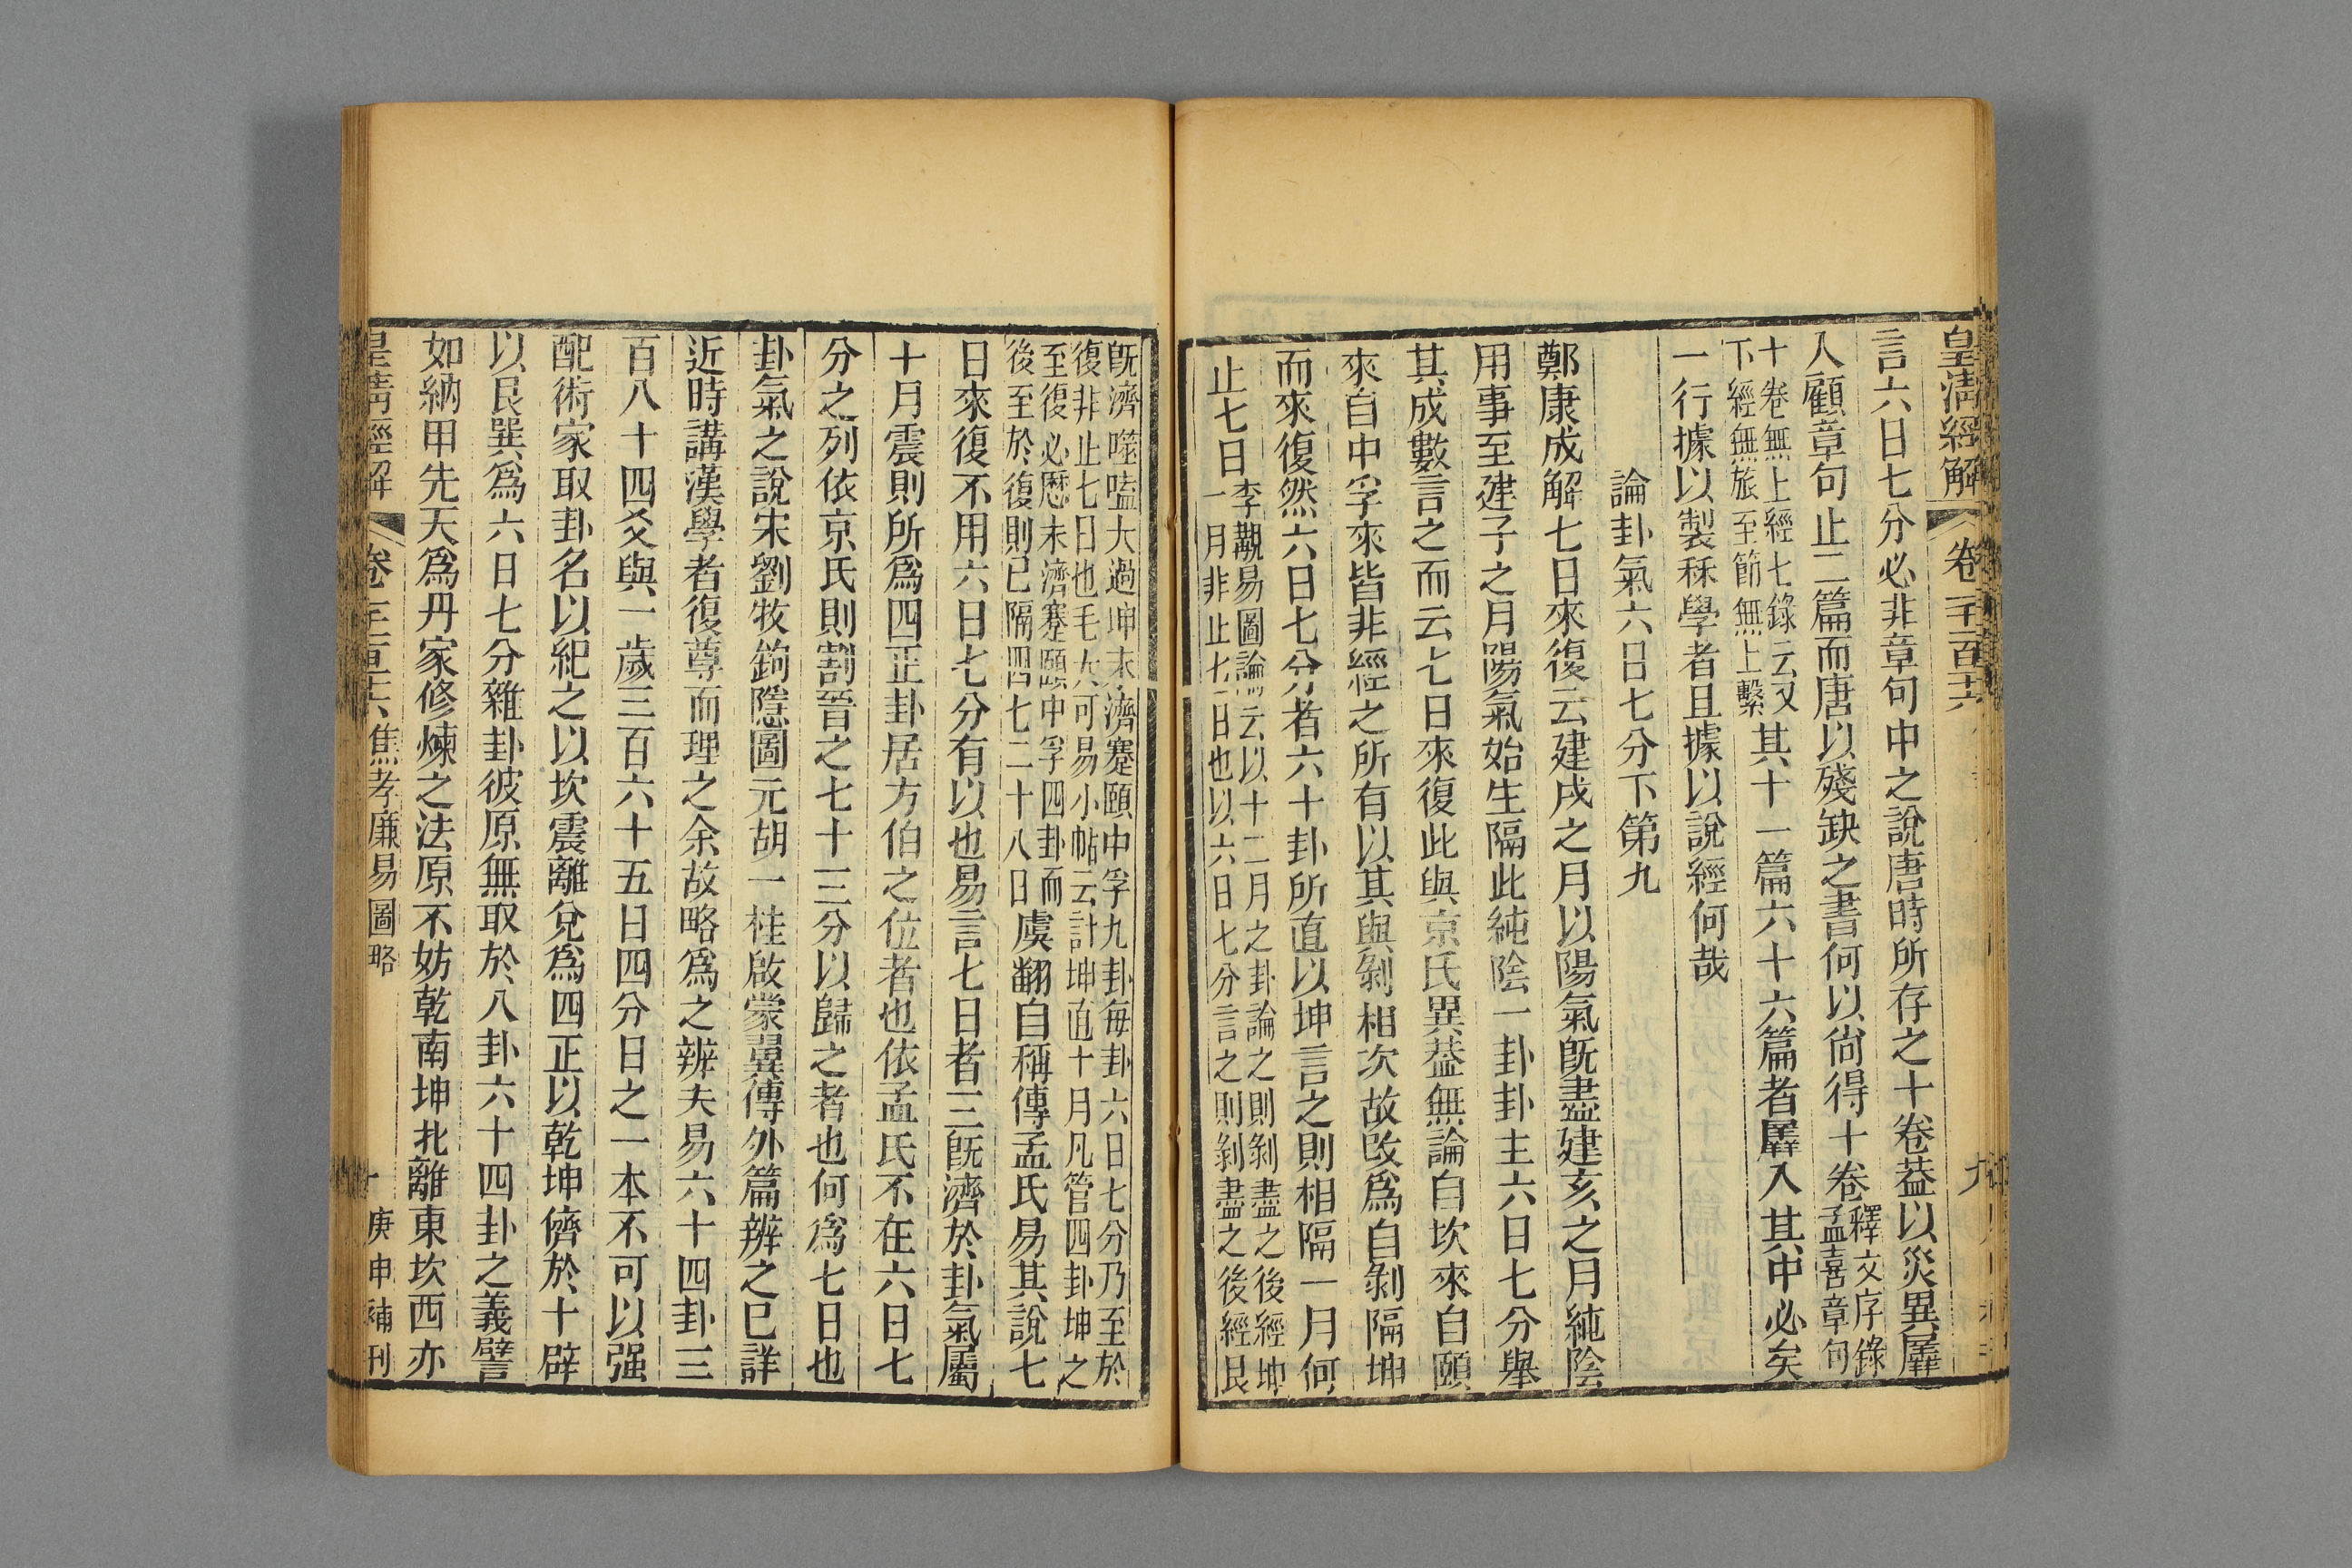 皇淸經解 卷一千一百十六 九
言六日七分必非章句中之說唐時所存之十卷葢以災異羼
入顧章句止二篇而唐以殘缺之書何以尙得十卷釋文序錄孟喜章句
十卷無上經七錄云又下經無旅至節無上繫其十一篇六十六篇者羼入其中必矣
一行據以製秝學者且據以說經何哉
論卦氣六日七分下第九
鄭康成解七日來復云建戌之月以陽氣旣盡建亥之月純陰
用事至建子之月陽氣始生隔此純陰一卦卦主六日七分舉
其成數言之而云七日來復此與京氏異葢無論自坎來自頤
來自中孚來皆非經之所有以其與剝相次故改爲自剝隔坤
而來復然六日七分者六十卦所直以坤言之則相隔一月何
止七日李觀易圖論云以十二月之卦論之則剝盡之後經坤一月非止七日也以六日七分言之則剝盡之後經艮
旣濟噬嗑大過坤未濟蹇頤中孚九卦每卦六日七分乃至於復非止七日也毛大可易小帖云計坤直十月凡管四卦坤之
至復必歷未濟蹇頤中孚四卦而後至於復則已隔四七二十八日虞翻自稱傳孟氏易其說七
日來復不用六日七分有以也易言七日者三旣濟於卦氣屬
十月震則所爲四正卦居方伯之位者也依孟氏不在六日七
分之列依京氏則割晉之七十三分以歸之者也何爲七日也
卦氣之說宋劉牧鉤隱圖元胡一桂啟蒙翼傳外篇辨之已詳
近時講漢學者復尊而理之余故略爲之辨夫易六十四卦三
百八十四爻與一歲三百六十五日四分日之一本不可以强
配術家取卦名以紀之以坎震離兌爲四正以乾坤儕於十辟
以艮巽爲六日七分雜卦彼原無取於八卦六十四卦之義譬
如納甲先天爲丹家修煉之法原不妨乾南坤北離東坎西亦
皇淸經解 卷一千一百十六 焦孝廉易圖略 十 庚申補刊